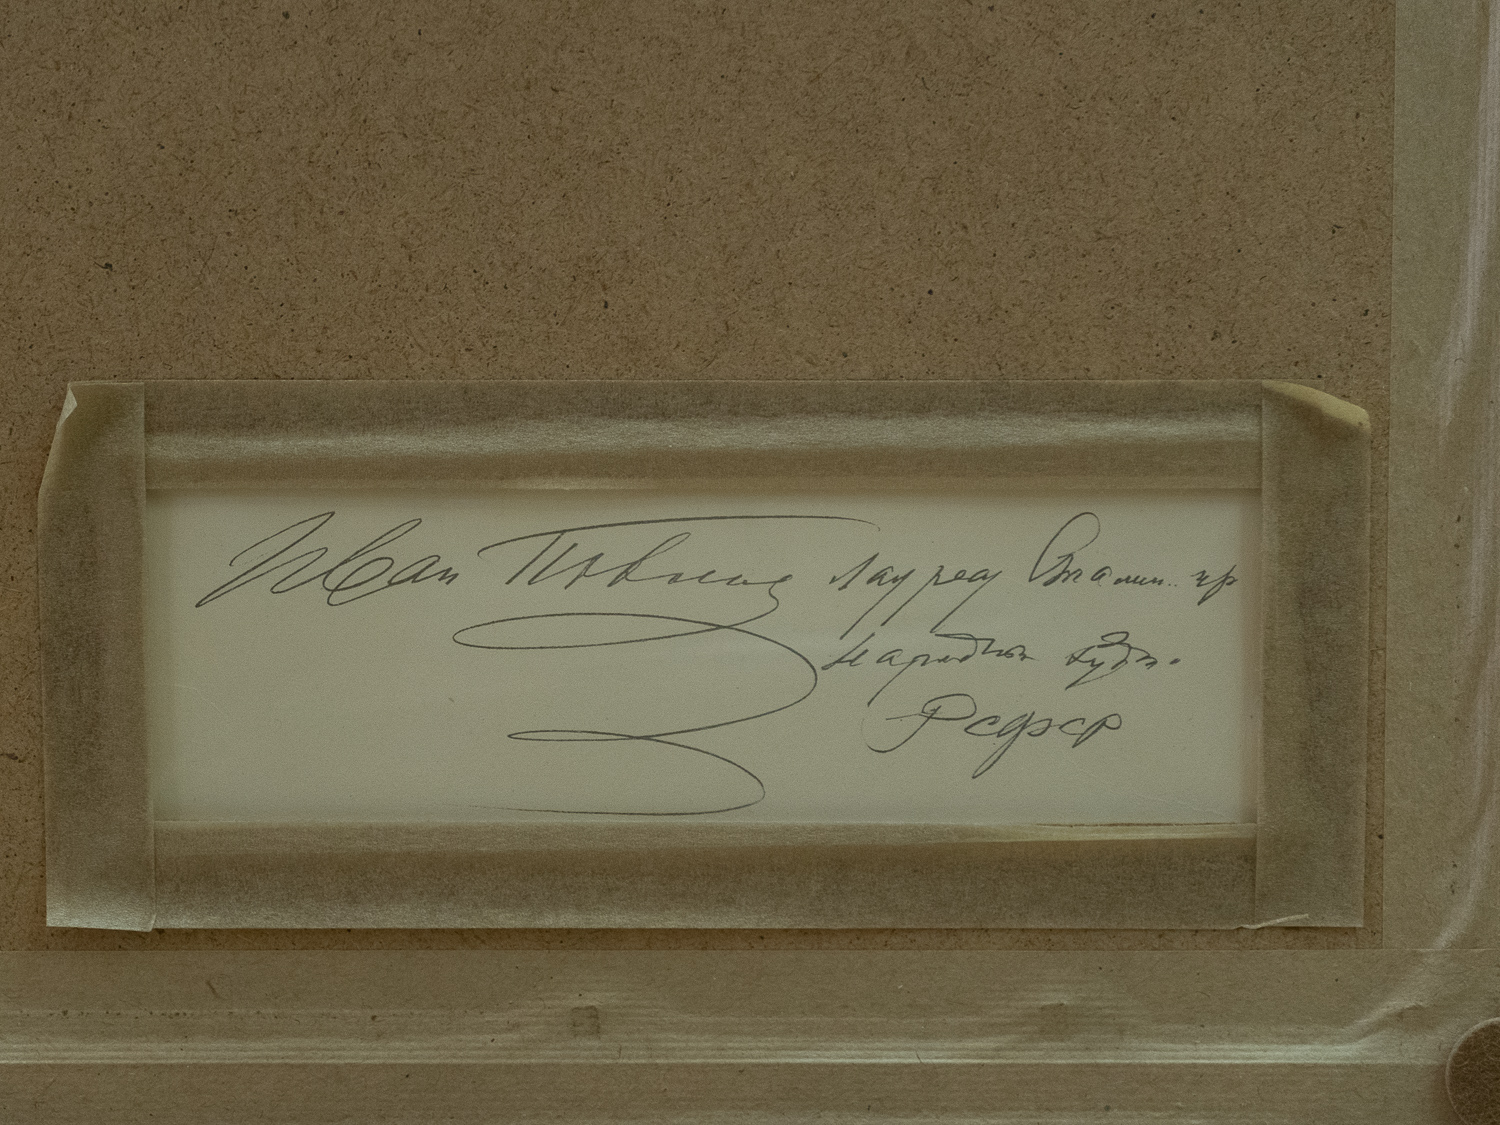 Иван лауреат Сталин. пр
народный худ.
РСФСР